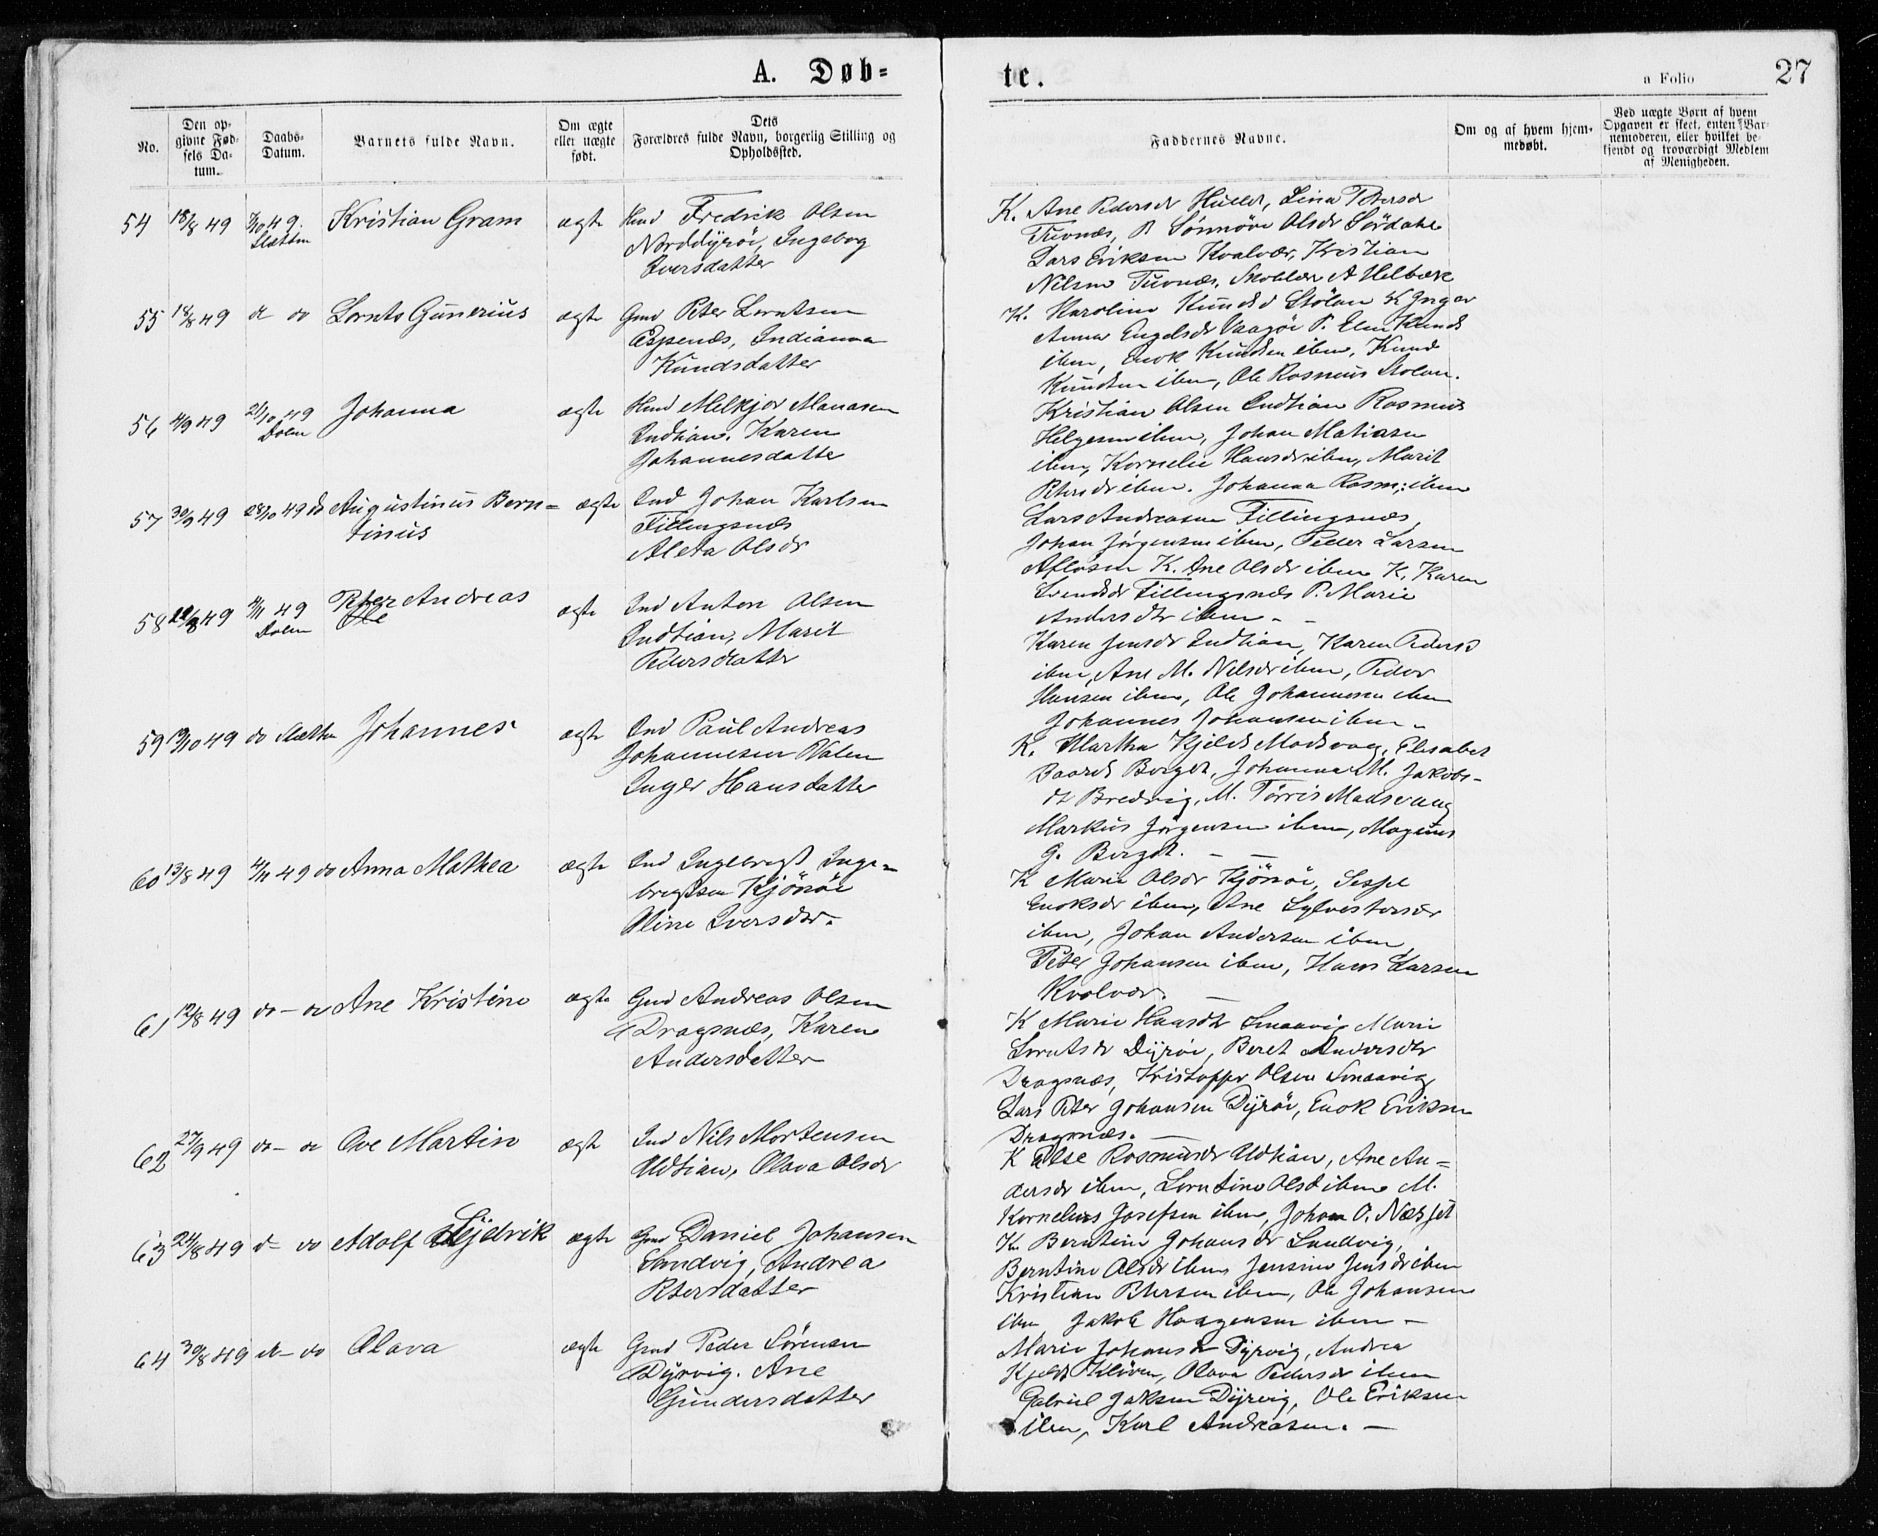 A. Døb=
te.
a Folio
27
No.
Den op-
givne Fød-
sels Da-
tum.
Daabs-
Datum.
Barnets fulde Navn.
Om ægte
eller uægte
født.
Dets
Forældres fulde Navn, borgerlig Stilling og
Opholdssted.
Faddernes Navne.
Om og af hvem hjem-
medøbt.
Ved uægte Børn af hvem
Opgaven er skeet, enten Bar-
nemoderen, eller hvilket be-
kjendt og troværdigt Medlem
af Menigheden.
54 18/8 49 Kristian Gram ægte Fredrik Olsen
Norddyrøi, Ingebog
Iversdatter
K. Ane Pedersdr Lina Petersdr
Olsdr
Lars Eriksen Kvalvær, Kristian
Nilsen
55 18/8 49 do Lornts Gunerius ægte Gmd Peter Lorntsen
Espenæs, Indianna
Kundsdatter
K. Karoline Stölan K Inger
Anna Engelsdr Vaagöi P.
iben, Enok Knudsen iben, Knud
Knudsen iben, Ole Rasmus Stolan.
56 4/9 49 21/10 49
Dolm
Johanna ægte Melkjor Manasen
Indtian. Karen
Johannesdatter
Kristian Olsen Indtian Rasmus
Helgesen iben, Johan Matiasen
iben, Kornelie Hansdr iben, Marit
Petersdr iben. Johanna Rasm: iben
57 30/9 49 28/10 49 do Augustinus Bern=
tinus
ægte Ind Johan Karlsen
Fillingsnæs
Aleta Olsdr
Lars Andreasen Fillingsnæs,
Johan Jörgensen iben, Peder Larsen
K. Ane Olsdr iben K. Karen
Svendsdr Fillingsnæs P. Marie
Andersdtr iben - -
58 49 4/11 49
Dolm
Peter Andreas
Ole
ægte Ind Anton Olsen
Indtian, Marit
Pedersdatter
Karen Jensdr Indtian, Karen Pedersd
iben, Ane M. Nelsdr iben, Peder
Hansen iben, Ole Johannesen iben
Johannes Johansen iben -
59 19/10 49 do Johannes ægte Ind Paul Andreas
Johannesen Valen
Inger Hansdatter
K. Martha Kjelsd Madsvag, Elisabet
Baardsd Berget, Johanna M. Jakobs-
dt Bredvig, M. Törris Madsvaag
Markus Jörgensen iben, Magnus
G. Berget. - -
60 13/8 49 4/11 49 do Anna Mathea ægte Ind Ingebrigt Inge=
brigtsen Kjönöi
Oline Iversdtr.
K Marie Olsdr Kjönöi,
Enoksdr iben, Ane Sylvestersdr
iben, Johan Andersen iben,
Peter Johansen iben, Hans Larsen
Kvolvær. -
61 12/8 49 do - do Ane Kristine ægte Gmd Andreas Olsen
Dragsnæs, Karen
Andersdatter
K Marie Hansdtr Smaavig Marie
Lorntsdr Dyröi, Beret Andersdtr
Dragsnæs, Kristoffer Olsen Smaavig
Lars Peter Johansen Dyröi, Enok Eriksen
Dragsnæs. -
62 27/9 49 do - do Ove Martin ægte Ind Nils Mortensen
Udtian, Olava Olsdr
K Else Rasmusdr Udtian, Ane An=
dersdr iben, Lorntine Olsd iben M.
Kornelius Josefsen iben, Johan O. Næsset
63 24/8 49 do - do Adolf Sijelvik ægte Gmd Daniel Johansen
Sandvig, Andrea
Petersdatter
K. Berntine Johansdr Sandvig,
Berntine Olsdr iben, Jensine Jensdr iben
Kristian Petersen iben, Ole Johansen
iben Jakob Haagensen iben -
64 30/8 49 do - do Olava ægte Gmd Peder Sörensen
Dyrvig. Ane
Gundersdatter
Marie Johansdr Dyrvig, Andrea
Kjelsd Klöven, Olava Pedersdr iben
Gabriel Jaksen Dyrvig, Ole Eriksen
iben, Karl Andreasen. -